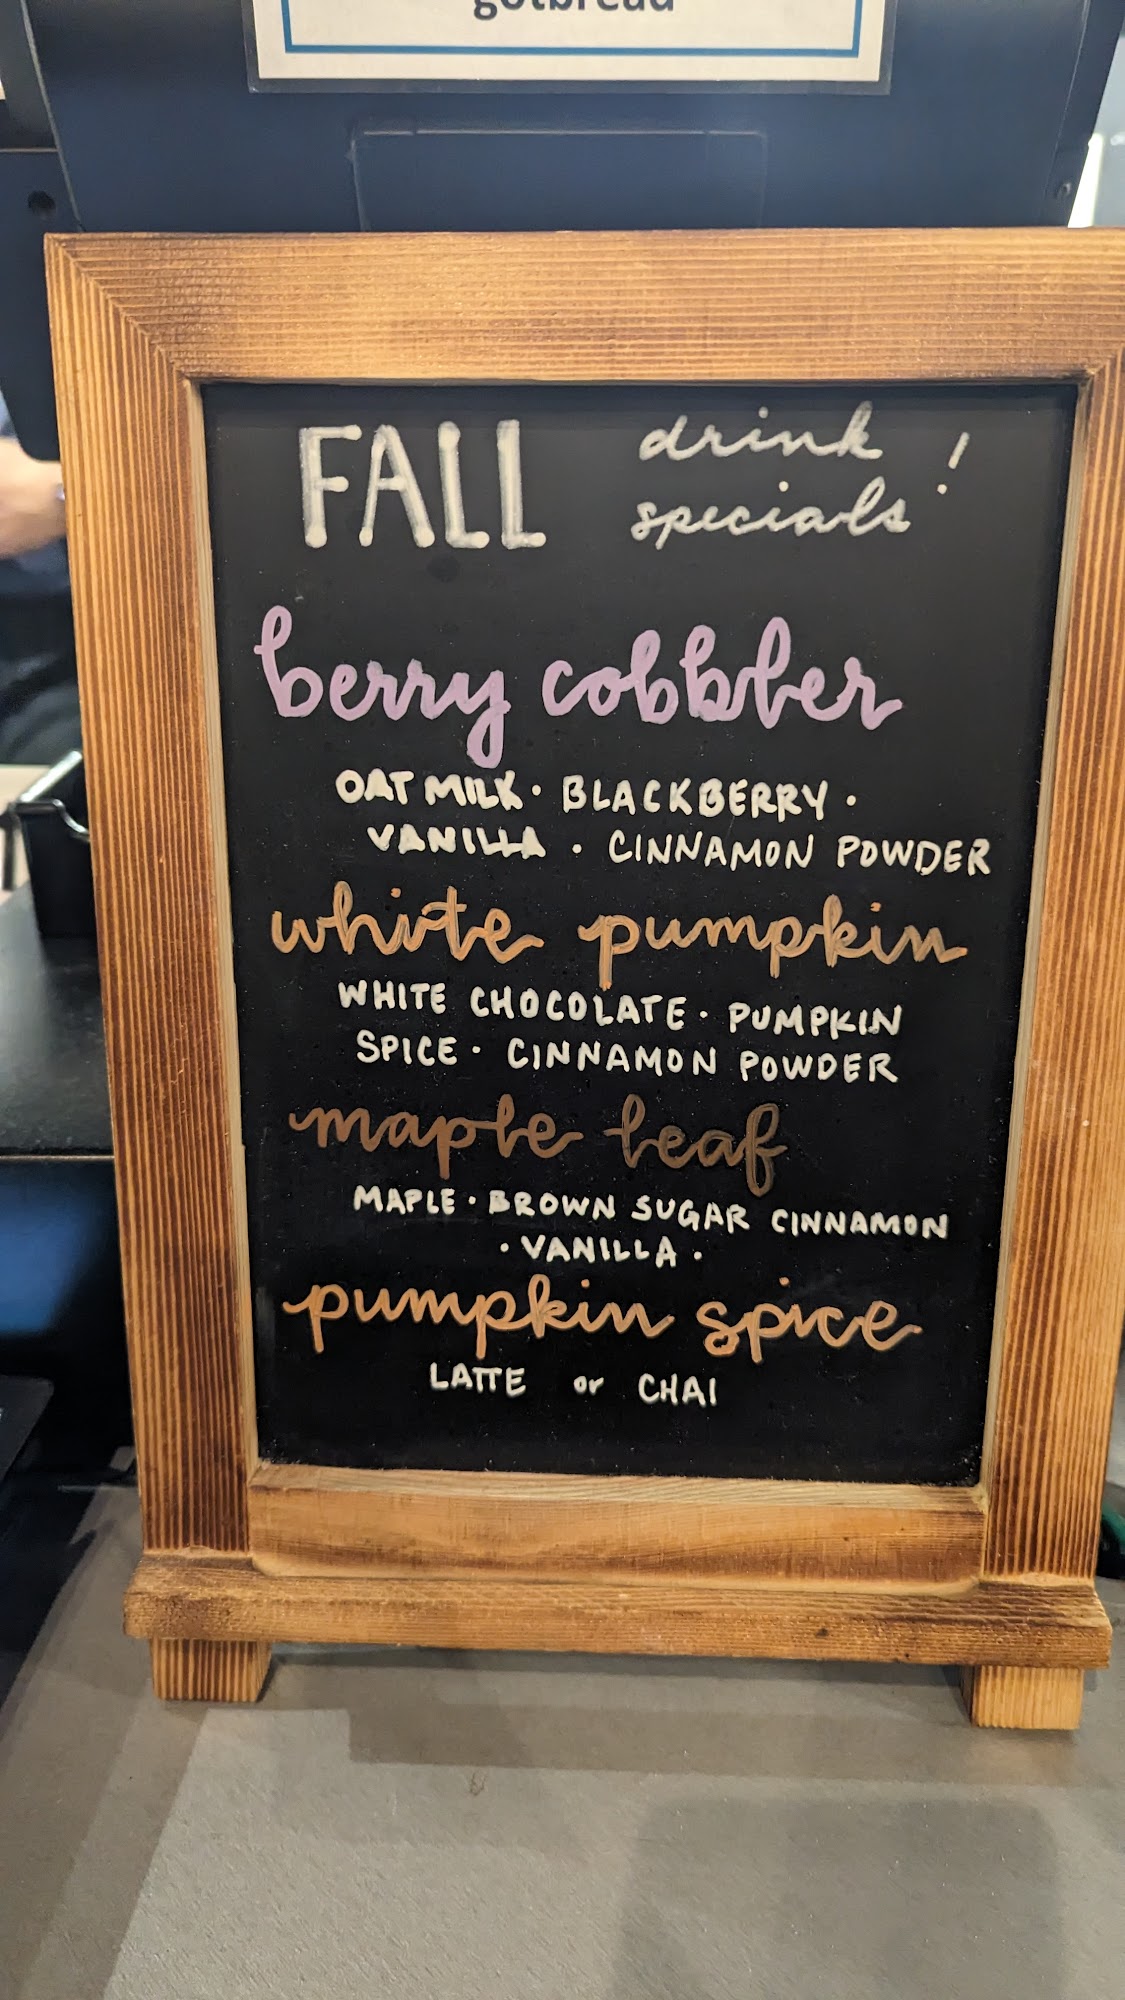 gotbread
FALL drink
specials!
berry cobbler
OAT MILK · BLACKBERRY ·
VANILLA · CINNAMON POWDER
white pumpkin
WHITE CHOCOLATE · PUMPKIN
SPICE · CINNAMON POWDER
maple leaf
MAPLE · BROWN SUGAR CINNAMON
· VANILLA ·
pumpkin spice
LATTE or CHAI